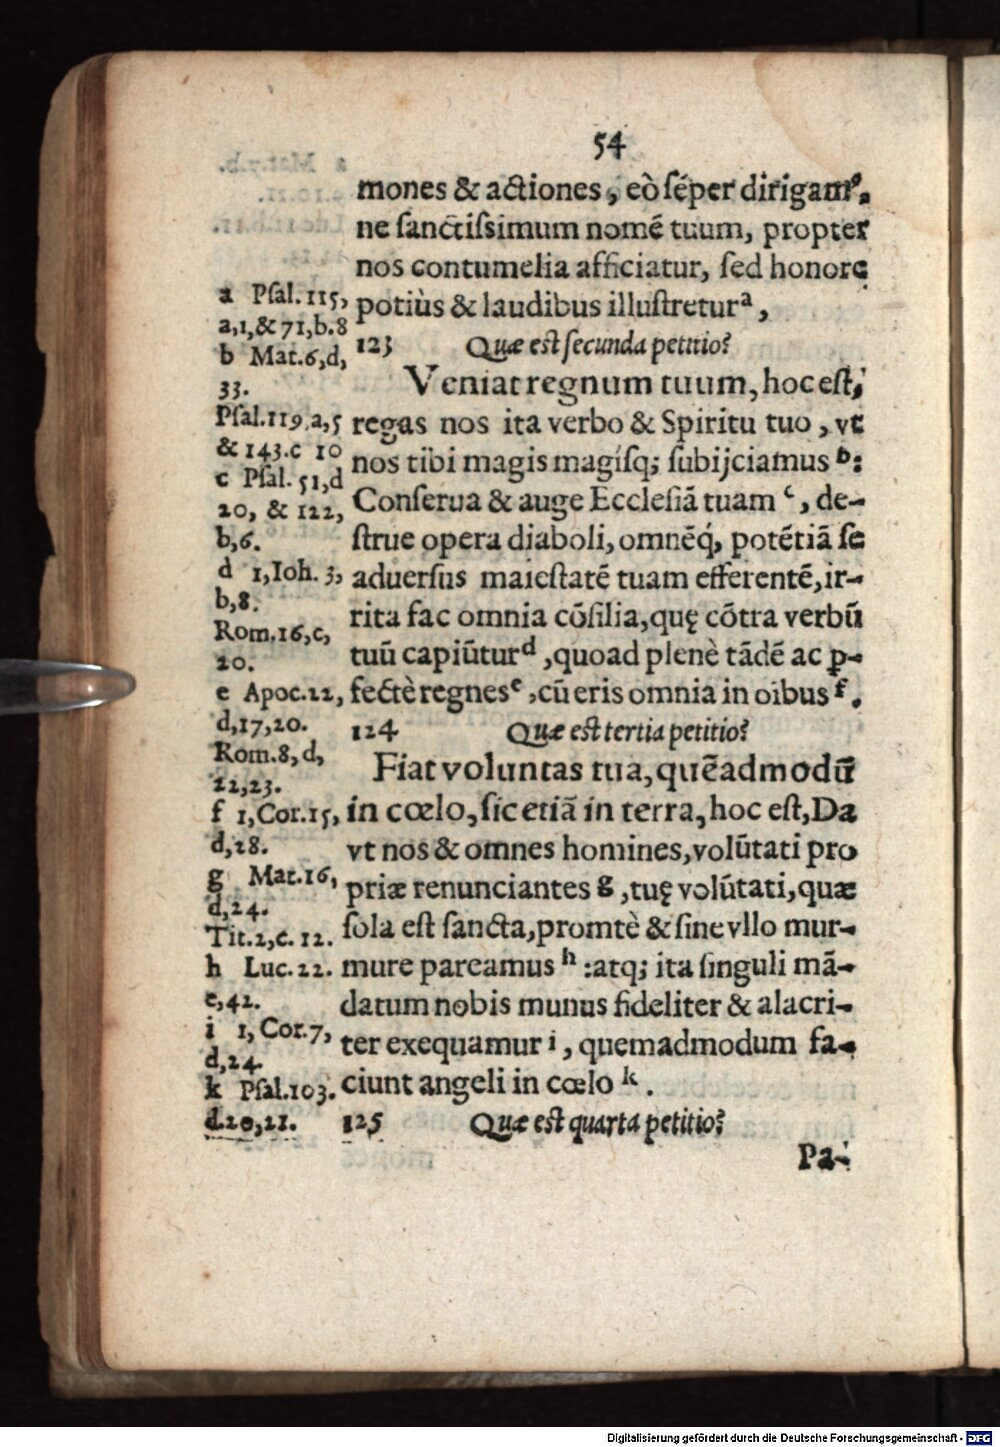 54
mones & actiones, eò sẽper dirigamꝰ,
ne sanctissimum nomẽ tuum, propter
nos contumelia afficiatur, sed honore
potiùs & laudibus illustretur a,
123 Quæ est secunda petitio?
Veniat regnum tuum, hoc est,
regas nos ita verbo & Spiritu tuo, vt
nos tibi magis magisq; subijciamus b:
Conserua & auge Ecclesiã tuam c, de-
strue opera diaboli, omnẽq́, potẽtiã se
aduersus maiestatẽ tuam efferentẽ, ir-
rita fac omnia cõsilia, quę cõtra verbũ
tuũ capiũtur d, quoad plenè tãdẽ ac ꝑ-
fectè regnes e, cũ eris omnia in oĩbus f.
124 Quæ est tertia petitio?
Fiat voluntas tua, quẽadmodũ
in cœlo, sic etiã in terra, hoc est, Da
vt nos & omnes homines, volũtati pro
priæ renunciantes g, tuę volũtati, quæ
sola est sancta, promtè & sine vllo mur-
mure pareamus h: atq; ita singuli mã-
datum nobis munus fideliter & alacri-
ter exequamur i, quemadmodum fa-
ciunt angeli in cœlo k.
125 Quæ est quarta petitio?
Pa-
a Psal. 115,
a,1,& 71,b.8
b Mat.6,d,
33.
Psal.119,a,5
& 143.c 10
c Psal. 51,d
20, & 122,
b,6.
d 1,Ioh. 3,
b,8.
Rom.16,c,
20.
e Apoc.22,
d,17,20.
Rom.8,d,
22,23.
f 1,Cor.15,
d,28.
g Mat.16,
d,24.
Tit.2,c. 12.
h Luc.22.
e,42.
i 1, Cor.7,
d,24.
k Psal.103.
d.20,21.
Digitalisierung gefördert durch die Deutsche Forschungsgemeinschaft - DFG